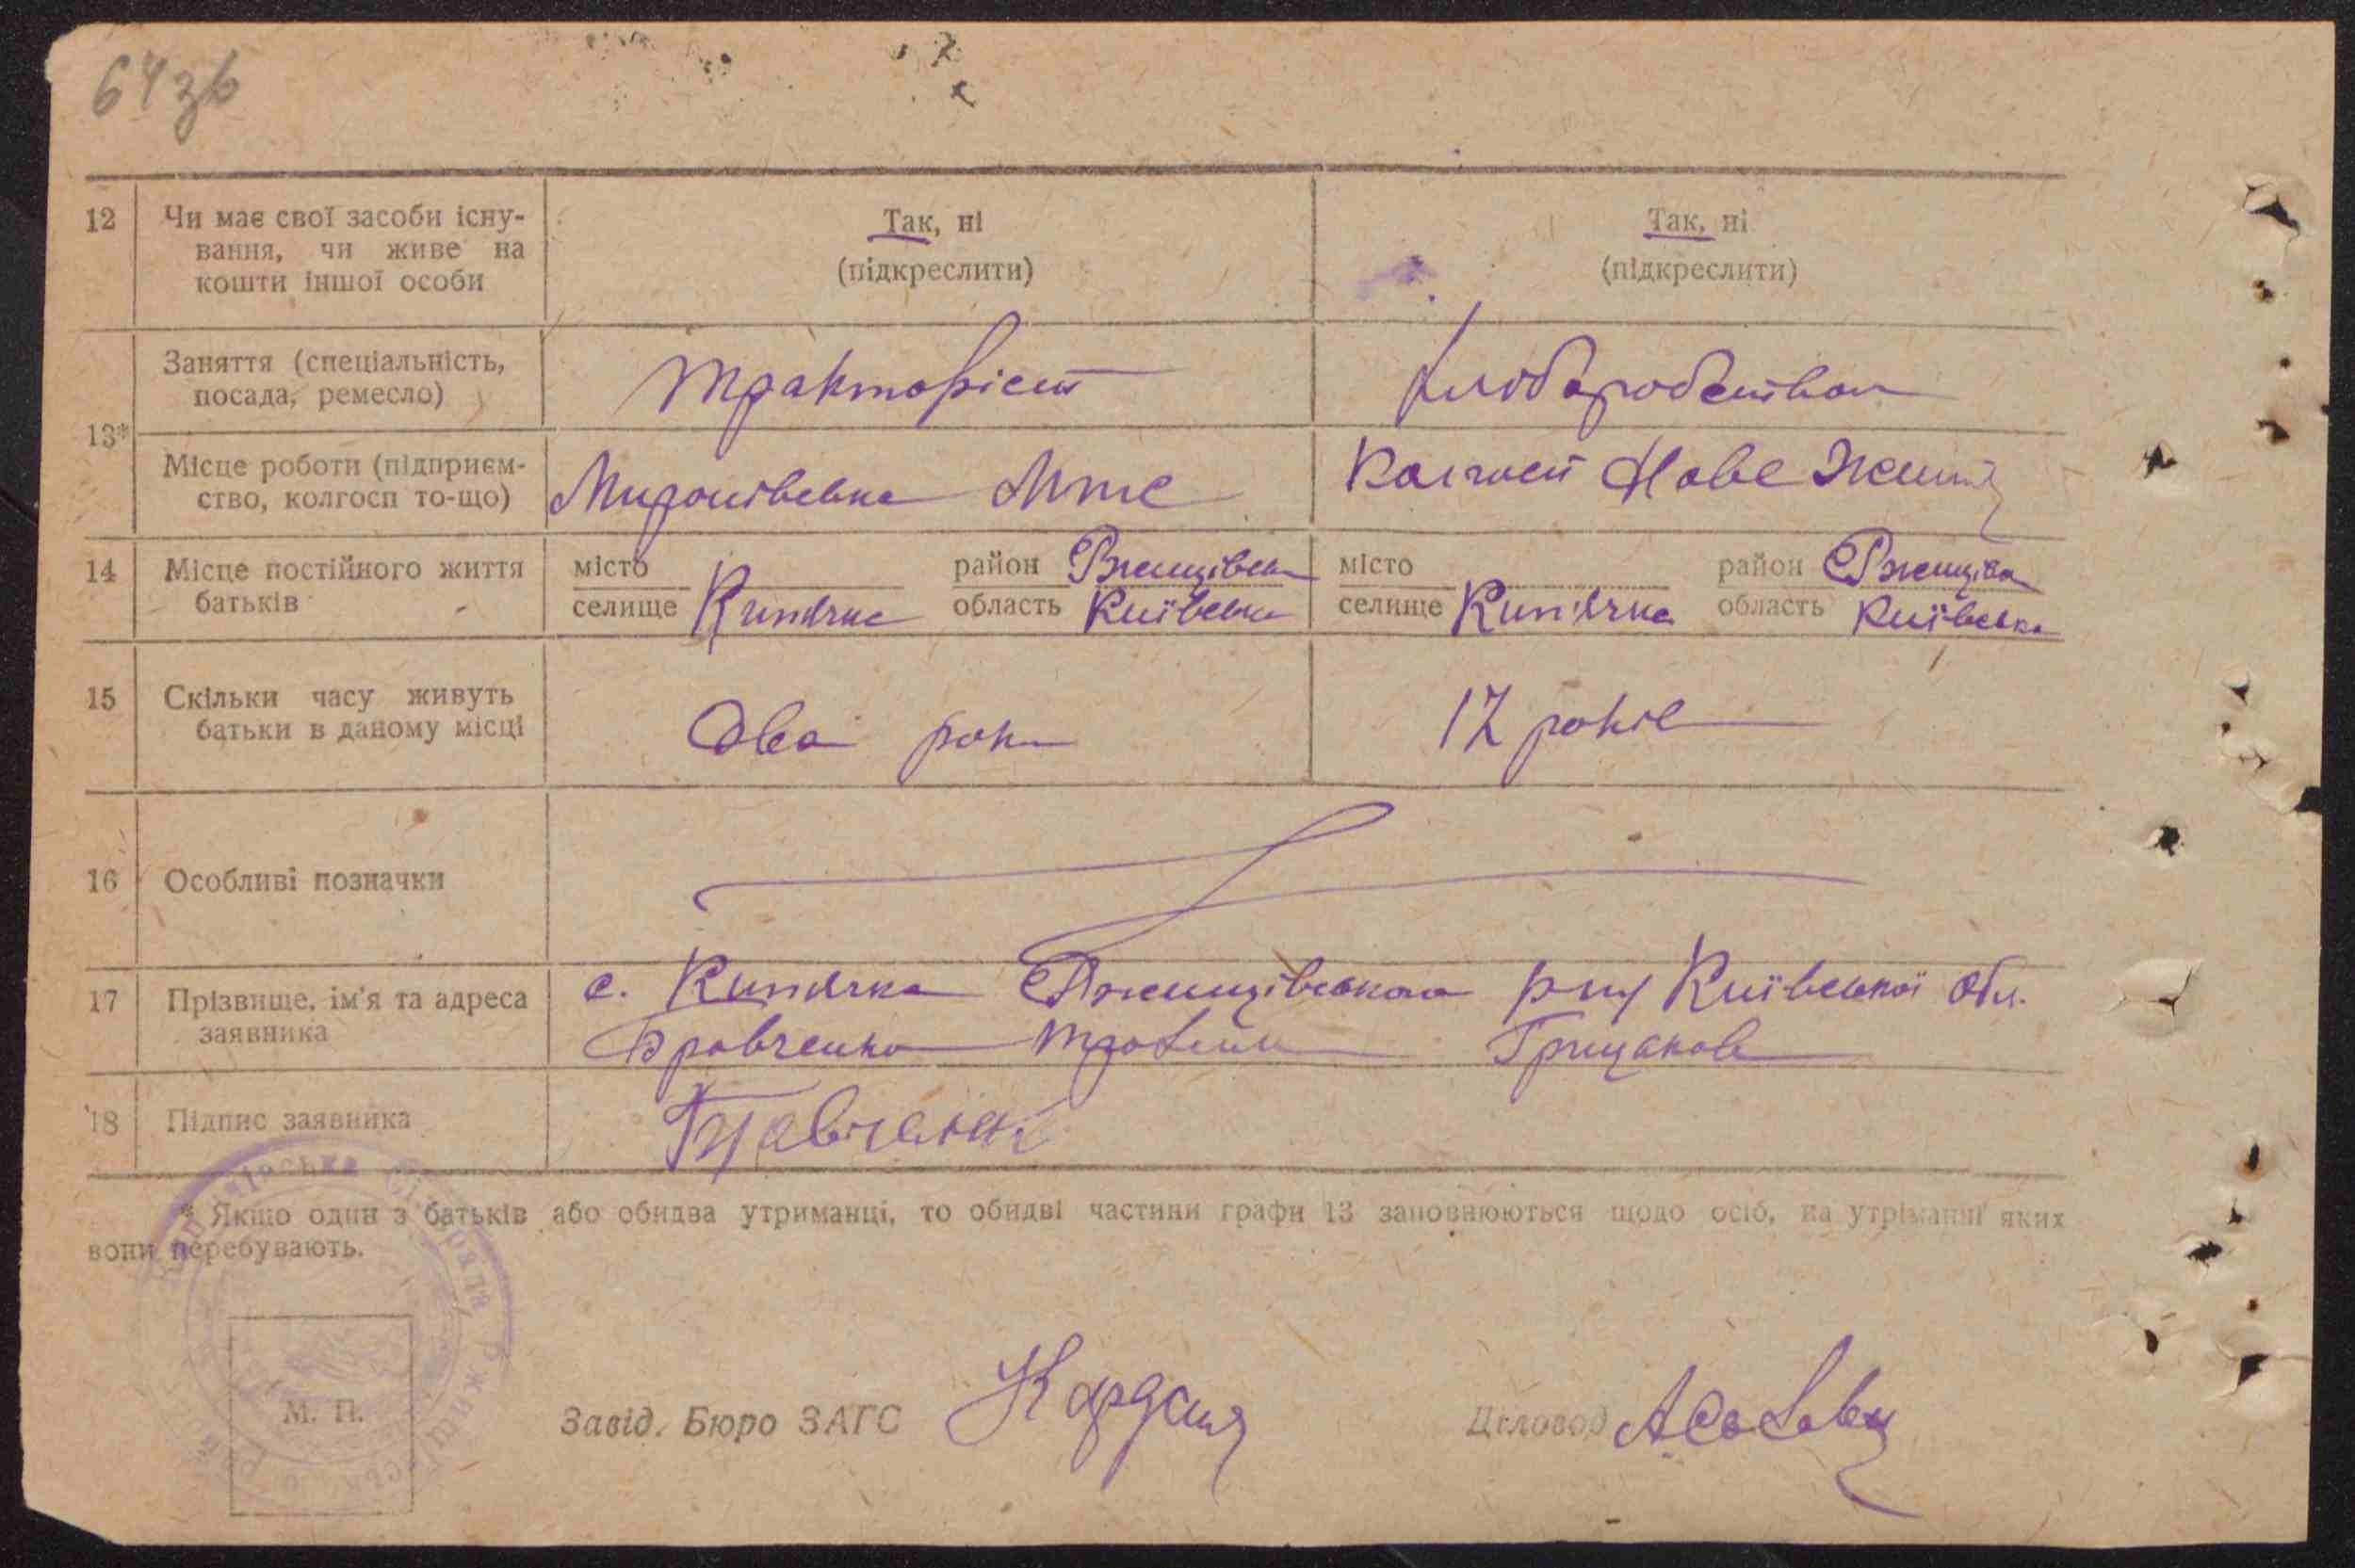 64зв
12 Чи має свої засоби існу- Так, ні Так, ні
вання, чи живе на (підкреслити) (підкреслити)
кошти іншої особи
Заняття (спеціальність, Тракторіст Хліборобство
посада, ремесло)
13*
Місце роботи (підприєм- Миронівська Мтс Колгосп Нове Життя
ство, колгосп то-що)
14 Місце постійного життя місто район Ржищівськ місто район Ржищівс
батьків селище Кипячка область Київська селище Кипячка область Київська
15 Скільки часу живуть Два роки 12 років
батьки в даному місці
16 Особливі позначки
17 Прізвище, ім'я та адреса с. Кипячка Ржищівського р-ну Київської Обл.
заявника Кравченко
18 Підпис заявника
* Якщо один з батьків або обидва утриманці, то обидві частини графи 13 заповнюються щодо осіб, на утріманні яких
вони перебувають.
М. П.
Завід. Бюро ЗАГС Діловод